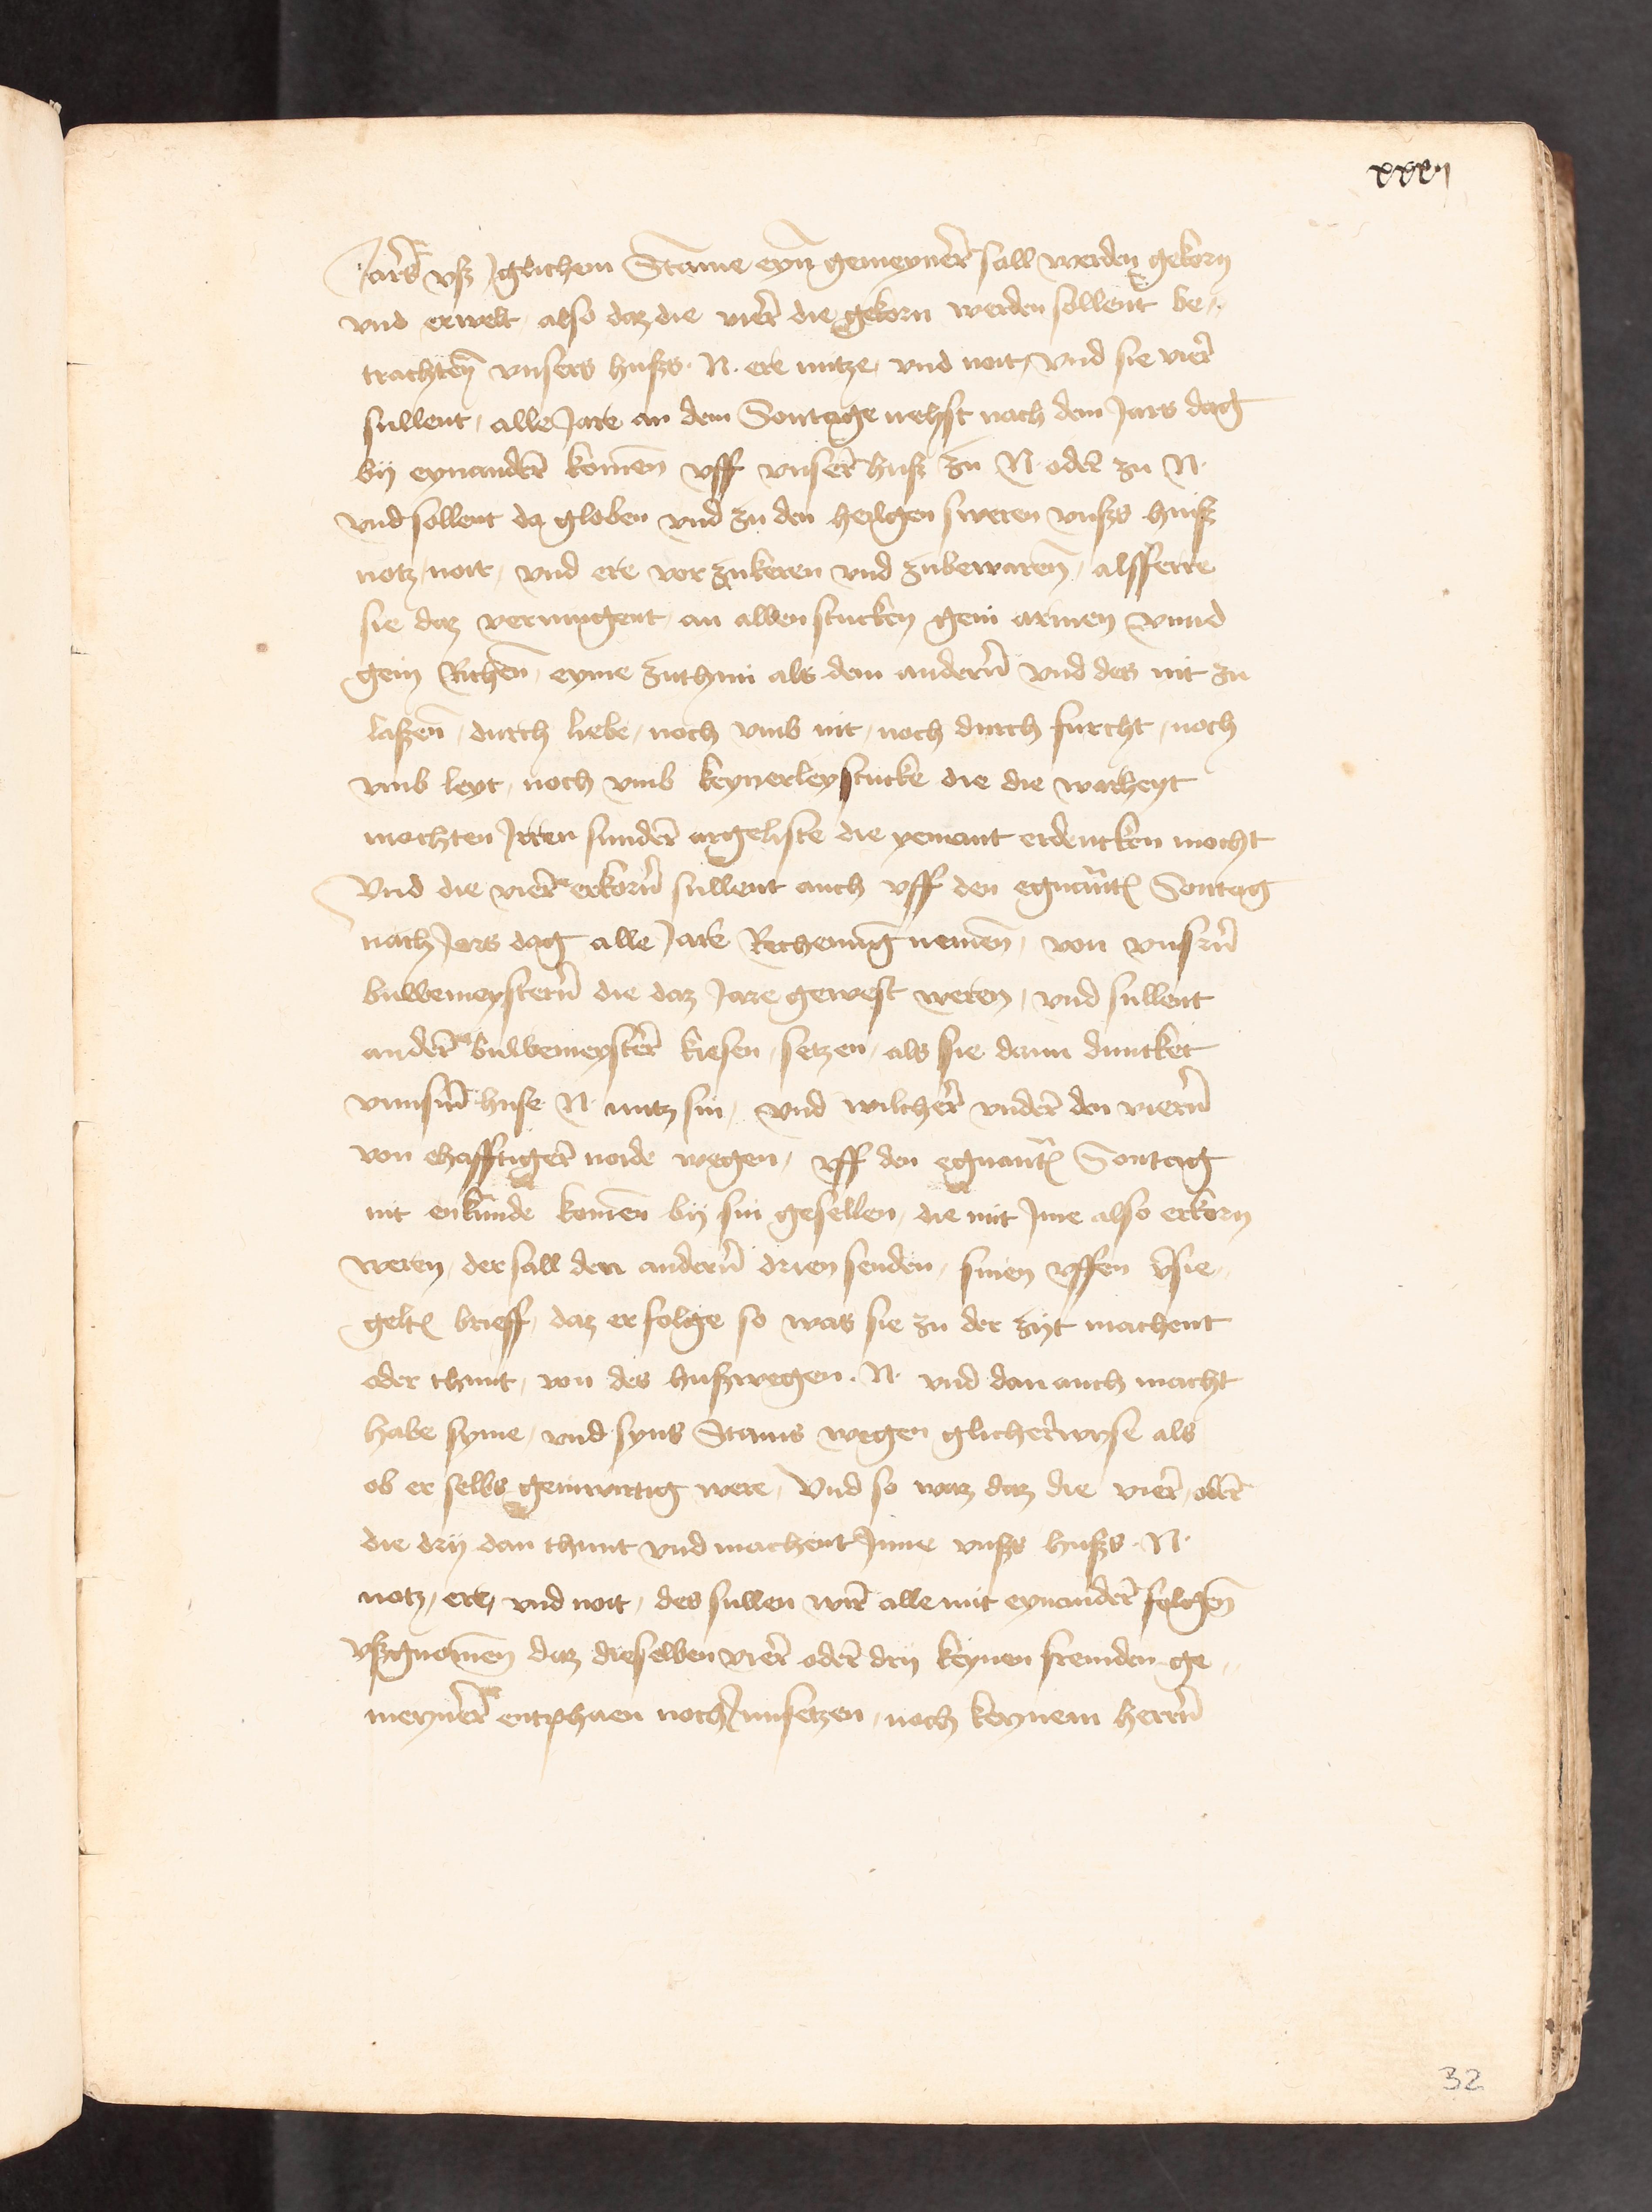 xxxij
Jars vß Jglichem Stame eyn gemeyner sall werden gekorn
vnd erwelt also daz die vier die gekorn werden sollent be-
trachten vnsers hußs N. ere nutze vnd noit vnd sie vier
sullent alle Jare an dem Sontage nehst nach dem Jars dag
bij eynander komen vff vnser huß zu N. oder zu N.
vnd sollent da globen vnd zu den heylgen sweren vnßs huiß
notz noit vnd ere vor zukeren vnd zubewaren alsferre
sie daz vermogent an allen stucken gein armen vnnd
gein Richen eyme zuthun als dem andern vnd des nit zu
laßen durch liebe noch vmb nit noch durch furcht noch
vmb leyt noch vmb keynerley stucke die die warheyt
mochten Jrren sunder argeliste die yemant erdencken mocht
Vnd die vier erkorn sullent auch vff den egnantt Sontag
nach Jars dag alle Jare Rechenung nemen von vnsern
buwemeystern die daz Jare gewest weren vnd sullent
ander buwemeyster kiesen setzen als sie dann duncket
vnnserm huse N. nutz sin vnd wilcher vnder den viern
von ehafftiger noide wegen vff den egnantt Sontag
nit enkunde komen bij sin gesellen die mit Jme also erkorn
weren der sall den andern drien senden sinen uffen v̉sie-
gelt brieff daz er folge so was sie zu der zijt machent
oder thunt von des hußwegen N. vnd dan auch macht
habe syme vnd syns Stams wegen glicherwyse als
ob er selbs geinwirtig were Vnd so waz daz die vier oder
die drij dan thunt vnd machent Jnne vnßs hußs N.
notz ere vnd noit des sullen wir alle mit eynander folgen
vßgnomen daz dieselben vier oder drij keynen fremden ge-
meyner entphaen noch Jnnsetzen noch keynem herrn
32